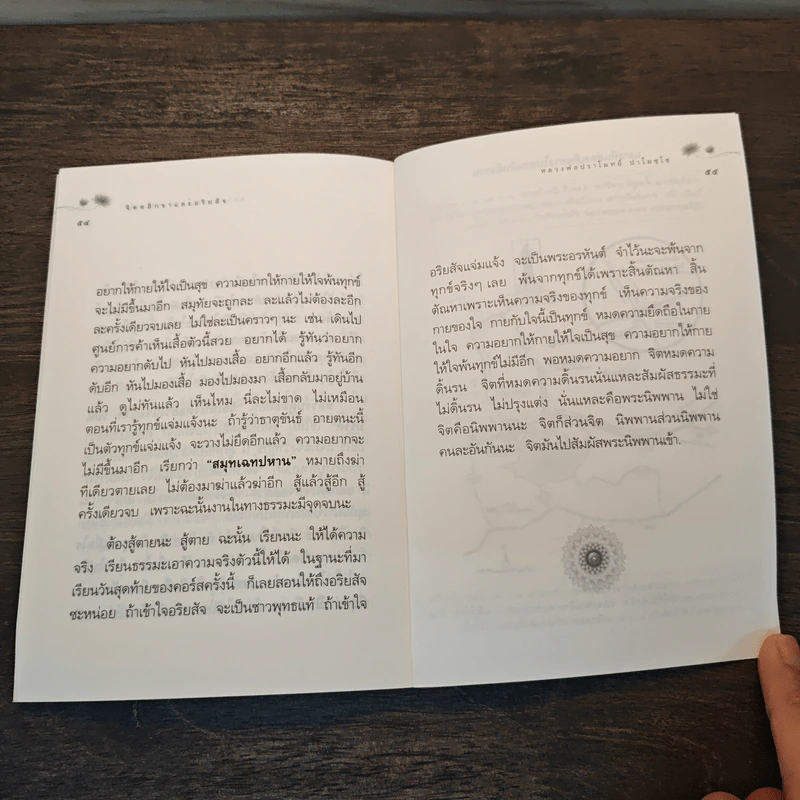 จิตตสิกขาและอริยสัจ
๕๔
อยากให้กายให้ใจเป็นสุข ความอยากให้กายให้ใจพ้นทุกข์
จะไม่มีขึ้นมาอีก สมุทัยจะถูกละ ละแล้วไม่ต้องละอีก
ละครั้งเดียวจบเลย ไม่ใช่ละเป็นคราวๆ นะ เช่น เดินไป
ศูนย์การค้าเห็นเสื้อตัวนี้สวย อยากได้ รู้ทันว่าอยาก
ความอยากดับไป หันไปมองเสื้อ อยากอีกแล้ว รู้ทันอีก
ดับอีก หันไปมองเสื้อ มองไปมองมา เสื้อกลับมาอยู่บ้าน
แล้ว ดูไม่ทันแล้ว เห็นไหม นี่ละไม่ขาด ไม่เหมือน
ตอนที่เรารู้ทุกข์แจ่มแจ้งนะ ถ้ารู้ว่าธาตุขันธ์ อายตนะนี้
เป็นตัวทุกข์แจ่มแจ้ง จะวางไม่ยึดอีกแล้ว ความอยากจะ
ไม่มีขึ้นมาอีก เรียกว่า “สมุทเฉทปหาน” หมายถึงฆ่า
ทีเดียวตายเลย ไม่ต้องมาฆ่าแล้วฆ่าอีก สู้แล้วสู้อีก สู้
ครั้งเดียวจบ เพราะฉะนั้นงานในทางธรรมะมีจุดจบนะ
ต้องสู้ตายนะ สู้ตาย ฉะนั้น เรียนนะ ให้ได้ความ
จริง เรียนธรรมะเอาความจริงตัวนี้ให้ได้ ในฐานะที่มา
เรียนวันสุดท้ายของคอร์สครั้งนี้ ก็เลยสอนให้ถึงอริยสัจ
ซะหน่อย ถ้าเข้าใจอริยสัจ จะเป็นชาวพุทธแท้ ถ้าเข้าใจ
หลวงพ่อปราโมทย์ ปาโมชฺโช
๕๕
อริยสัจแจ่มแจ้ง จะเป็นพระอรหันต์ จำไว้นะจะพ้นจาก
ทุกข์จริงๆ เลย พ้นจากทุกข์ได้เพราะสิ้นตัณหา สิ้น
ตัณหาเพราะเห็นความจริงของทุกข์ เห็นความจริงของ
กายของใจ กายกับใจนี้เป็นทุกข์ หมดความยึดถือในกาย
ในใจ ความอยากให้กายให้ใจเป็นสุข ความอยากให้กาย
ให้ใจพ้นทุกข์ไม่มีอีก พอหมดความอยาก จิตหมดความ
ดิ้นรน จิตที่หมดความดิ้นรนนั่นแหละสัมผัสธรรมะที่
ไม่ดิ้นรน ไม่ปรุงแต่ง นั่นแหละคือพระนิพพาน ไม่ใช่
จิตคือนิพพานนะ จิตก็ส่วนจิต นิพพานส่วนนิพพาน
คนละอันกันนะ จิตมันไปสัมผัสพระนิพพานเข้า.